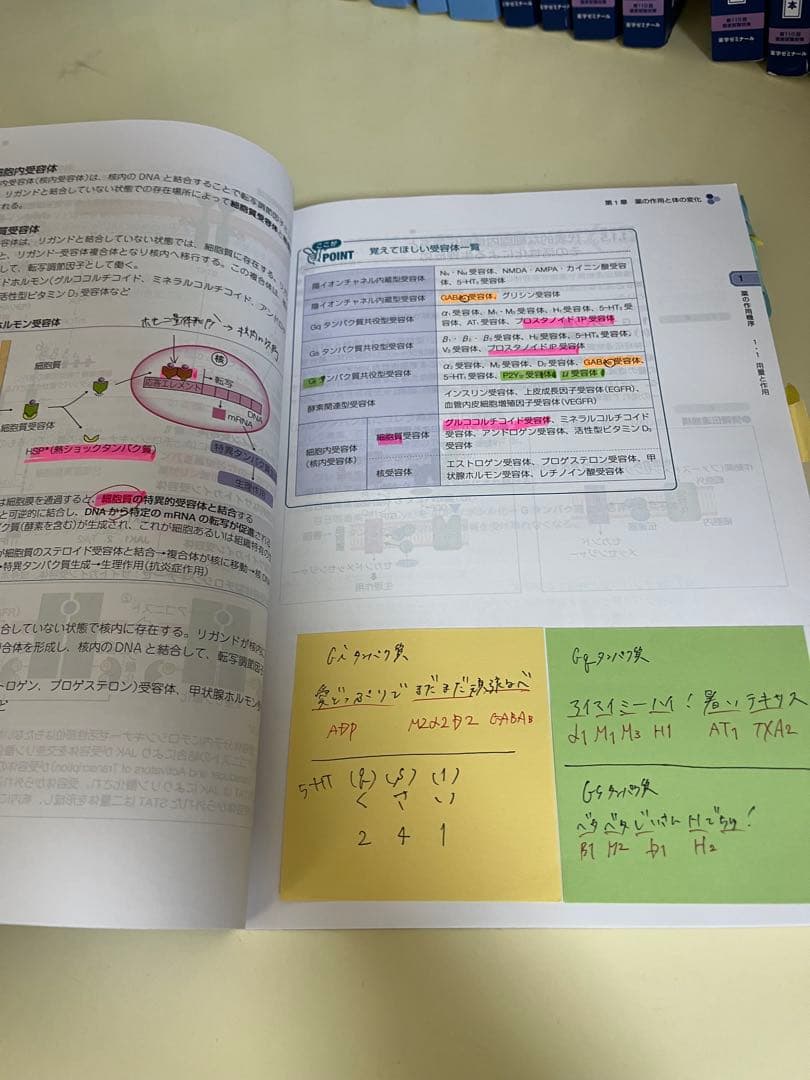 第110回
薬学ゼミナール
本
細胞内受容体
内受容体(核内受容体)は、核内のDNAと結合することで転写調節因子
リガンドと結合していない状態での存在場所によって細胞質受容体
れる。
質受容体
容体は、リガンドと結合していない状態では、細胞質に存在する。リガ
と、リガンド-受容体複合体となり核内へ移行する。この複合体は、
して、転写調節因子として働く。
ドホルモン(グルココルチコイド、ミネラルコルチコイド、アンドロ
活性型ビタミンD₃受容体など
ホルモン受容体
細胞質
核
転写
応答エレメント
DNA
mRNA
細胞質受容体
HSP*(熱ショックタンパク質)
特異タンパク質
生理作用
は細胞膜を通過すると、細胞質の特異的受容体と結合する
と可逆的に結合し、DNAから特定のmRNAの転写が促進される
ク質(酵素を含む)が生成され、これが細胞あるいは組織特有の
が細胞質のステロイド受容体と結合→複合体が核に移動→核DN
→特異タンパク質生成→生理作用(抗炎症作用)
合していない状態で核内に存在する。リガンドが核内に
合体を形成し、核内のDNAと結合して、転写調節因子
トロゲン、プロゲステロン)受容体、甲状腺ホルモン
ど
第1章 薬の作用と体の変化
ここが
POINT 覚えてほしい受容体一覧
陽イオンチャネル内蔵型受容体 Nₙ・Nₘ受容体、NMDA・AMPA・カイニン酸受容体、5-HT₃受容体
陰イオンチャネル内蔵型受容体 GABAA受容体、グリシン受容体
Gqタンパク質共役型受容体 α₁受容体、M₁・M₃受容体、H₁受容体、5-HT₂受容体、AT₁受容体、プロスタノイドTP受容体
Gsタンパク質共役型受容体 β₁・β₂・β₃受容体、H₂受容体、5-HT₄受容体、V₂受容体、プロスタノイドIP受容体
Giタンパク質共役型受容体 α₂受容体、M₂受容体、D₂受容体、GABAB受容体、5-HT₁受容体、P2Y₁₂受容体、μ受容体
酵素関連型受容体 インスリン受容体、上皮成長因子受容体(EGFR)、血管内皮細胞増殖因子受容体(VEGFR)
細胞内受容体
(核内受容体)
細胞質受容体 グルココルチコイド受容体、ミネラルコルチコイド受容体、アンドロゲン受容体、活性型ビタミンD₃受容体
核受容体 エストロゲン受容体、プロゲステロン受容体、甲状腺ホルモン受容体、レチノイン酸受容体
1
薬の作用機序
1・1 用量と作用
Giタンパク質
愛どっぷりで まだまだ頑張るべ
ADP M2α2D2 GABAB
5-HT (q) (s) (i)
く さ い
2 4 1
Gqタンパク質
アイスイミーハイ! 暑いテキサス
α1 M1 M3 H1 AT1 TXA2
Gsタンパク質
ベタベタじいさんHでちゅ!
B1 M2 D1 H2